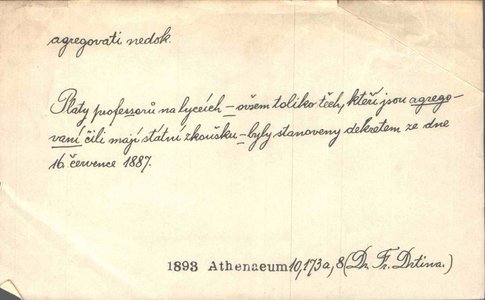 agregovati nedok.
Platy professorů na lyceích – ovšem toliko těch, kteří jsou agrego-
vaní čili mají státní zkoušku – byly stanoveny dekretem ze dne
16. července 1887.
1893 Athenaeum 10, 173a, 8 (Dr. Fr. Drtina.)